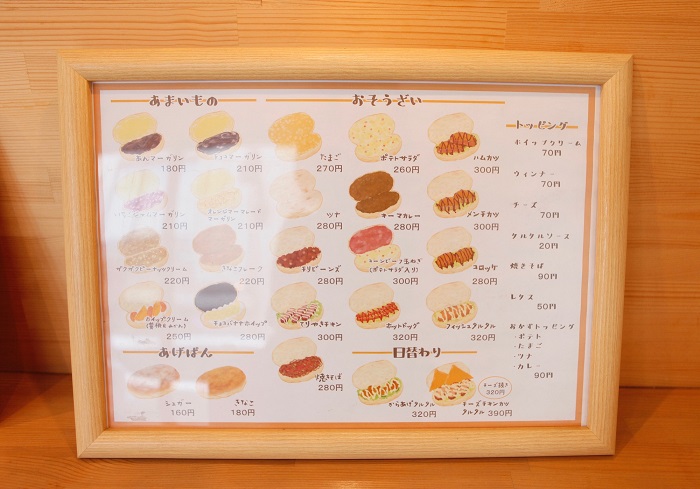 あまいもの
あんマーガリン
180円
マーガリン
210円
マーガリン
210円
オレンジマーマレード
マーガリン
210円
ピーナックリーム
220円
きなこフレーク
220円
ホイップクリーム
250円
チョコバナナホイップ
280円
あげぱん
シュガー
160円
きなこ
180円
おそうざい
たまご
270円
ポテトサラダ
260円
ハムカツ
300円
ツナ
280円
キーマカレー
280円
メンチカツ
300円
チリビーンズ
280円
コーンビーフ玉ねぎ
(ポテトサラダ入り)
350円
コロッケ
280円
てりやきチキン
300円
ホットドッグ
320円
フィッシュタルタル
320円
焼きそば
280円
日替わり
からあげタルタル
320円
チーズチキンカツ
タルタル 390円
チーズ抜き
320円
トッピング
ホイップクリーム
70円
ウィンナー
70円
チーズ
70円
タルタルソース
20円
焼きそば
90円
レタス
50円
おかずトッピング
・ポテト
・たまご
・ツナ
・カレー
90円